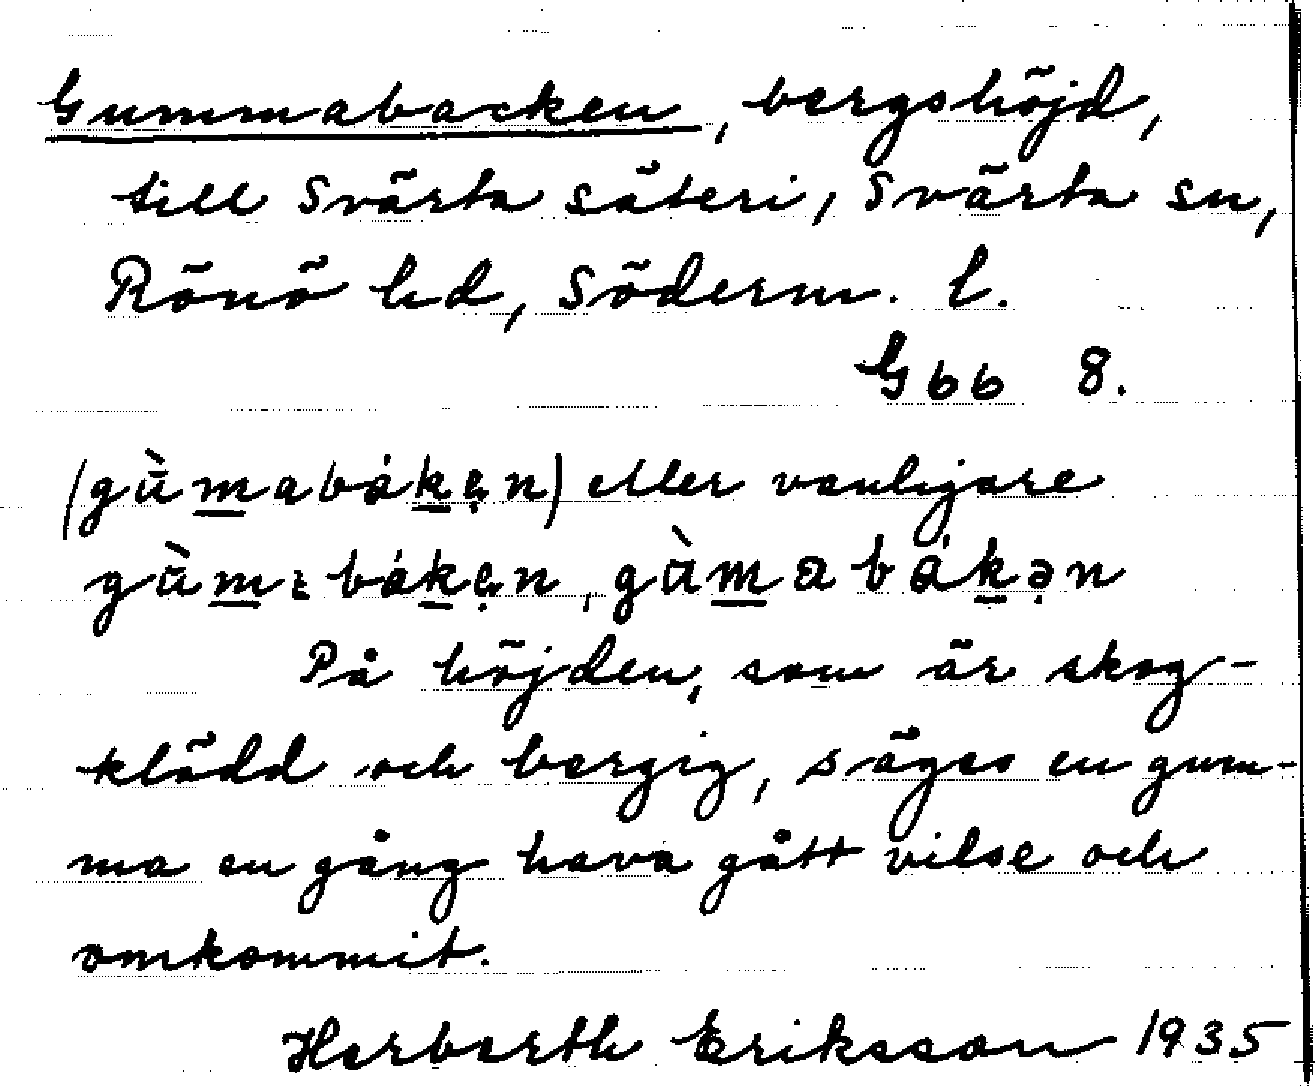 Gummabacken, bergshöjd,
till Svärta säteri, Svärta sn,
Rönö hd, Söderm. l.
Gbb 8.
(gù̄m̲abák̲ə̣n) eller vanligare
gù̄m̲ɛbák̲ə̣n, gù̄m̲abák̲ə̣n
På höjden, som är skog-
klädd och bergig, säges en gum-
ma en gång hava gått vilse och
omkommit.
Herberth Eriksson 1935